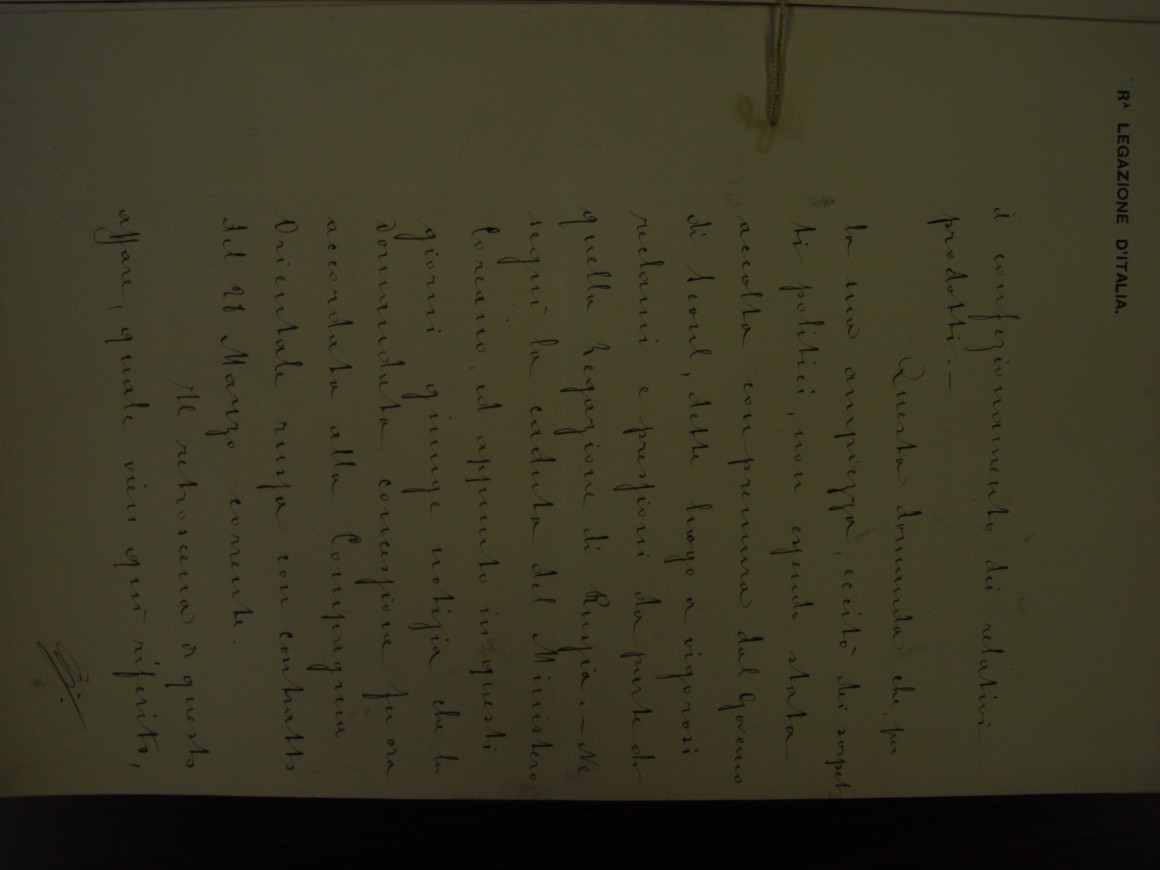 Rᴬ LEGAZIONE D'ITALIA.
il confezionamento dei relativi
prodotti. —
Questa domanda che, per
la sua ampiezza, eccitò dei sospet-
ti politici, non essendo stata
accolta con premura dal Governo
di Seoul, dette luogo a vigorosi
reclami e pressioni da parte di
quella Legazione di Russia. — Ne
seguì la caduta del Ministero
Coreano, ed appunto in questi
giorni giunge notizia che la
domandata concessione fu ora
accordata alla Compagnia
Orientale russa con contratto
del 28 Marzo corrente.
Il retroscena di questo
affare, quale vien quì riferito,